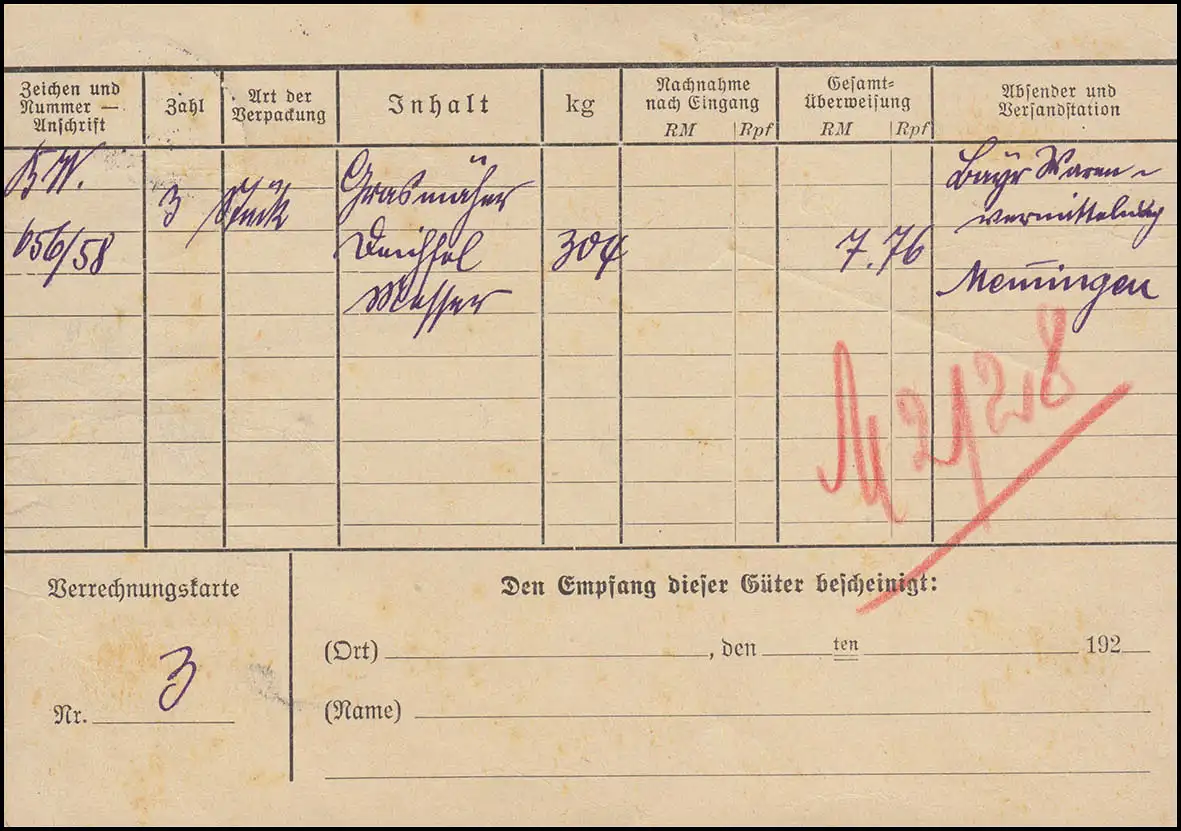 Zeichen und
Nummer —
Anschrift
Zahl
Art der
Verpackung
Inhalt
kg
Nachnahme
nach Eingang
RM Rpf
Gesamt-
überweisung
RM Rpf
Absender und
Versandstation
B W.
656/58
3 Stück
Grasmäher
Deichsel
Messer
304
7.76
Bayr Waren-
vermittelung
Memmingen
Verrechnungskarte
Nr. 3
Den Empfang dieser Güter bescheinigt:
(Ort) , den ten 192
(Name)